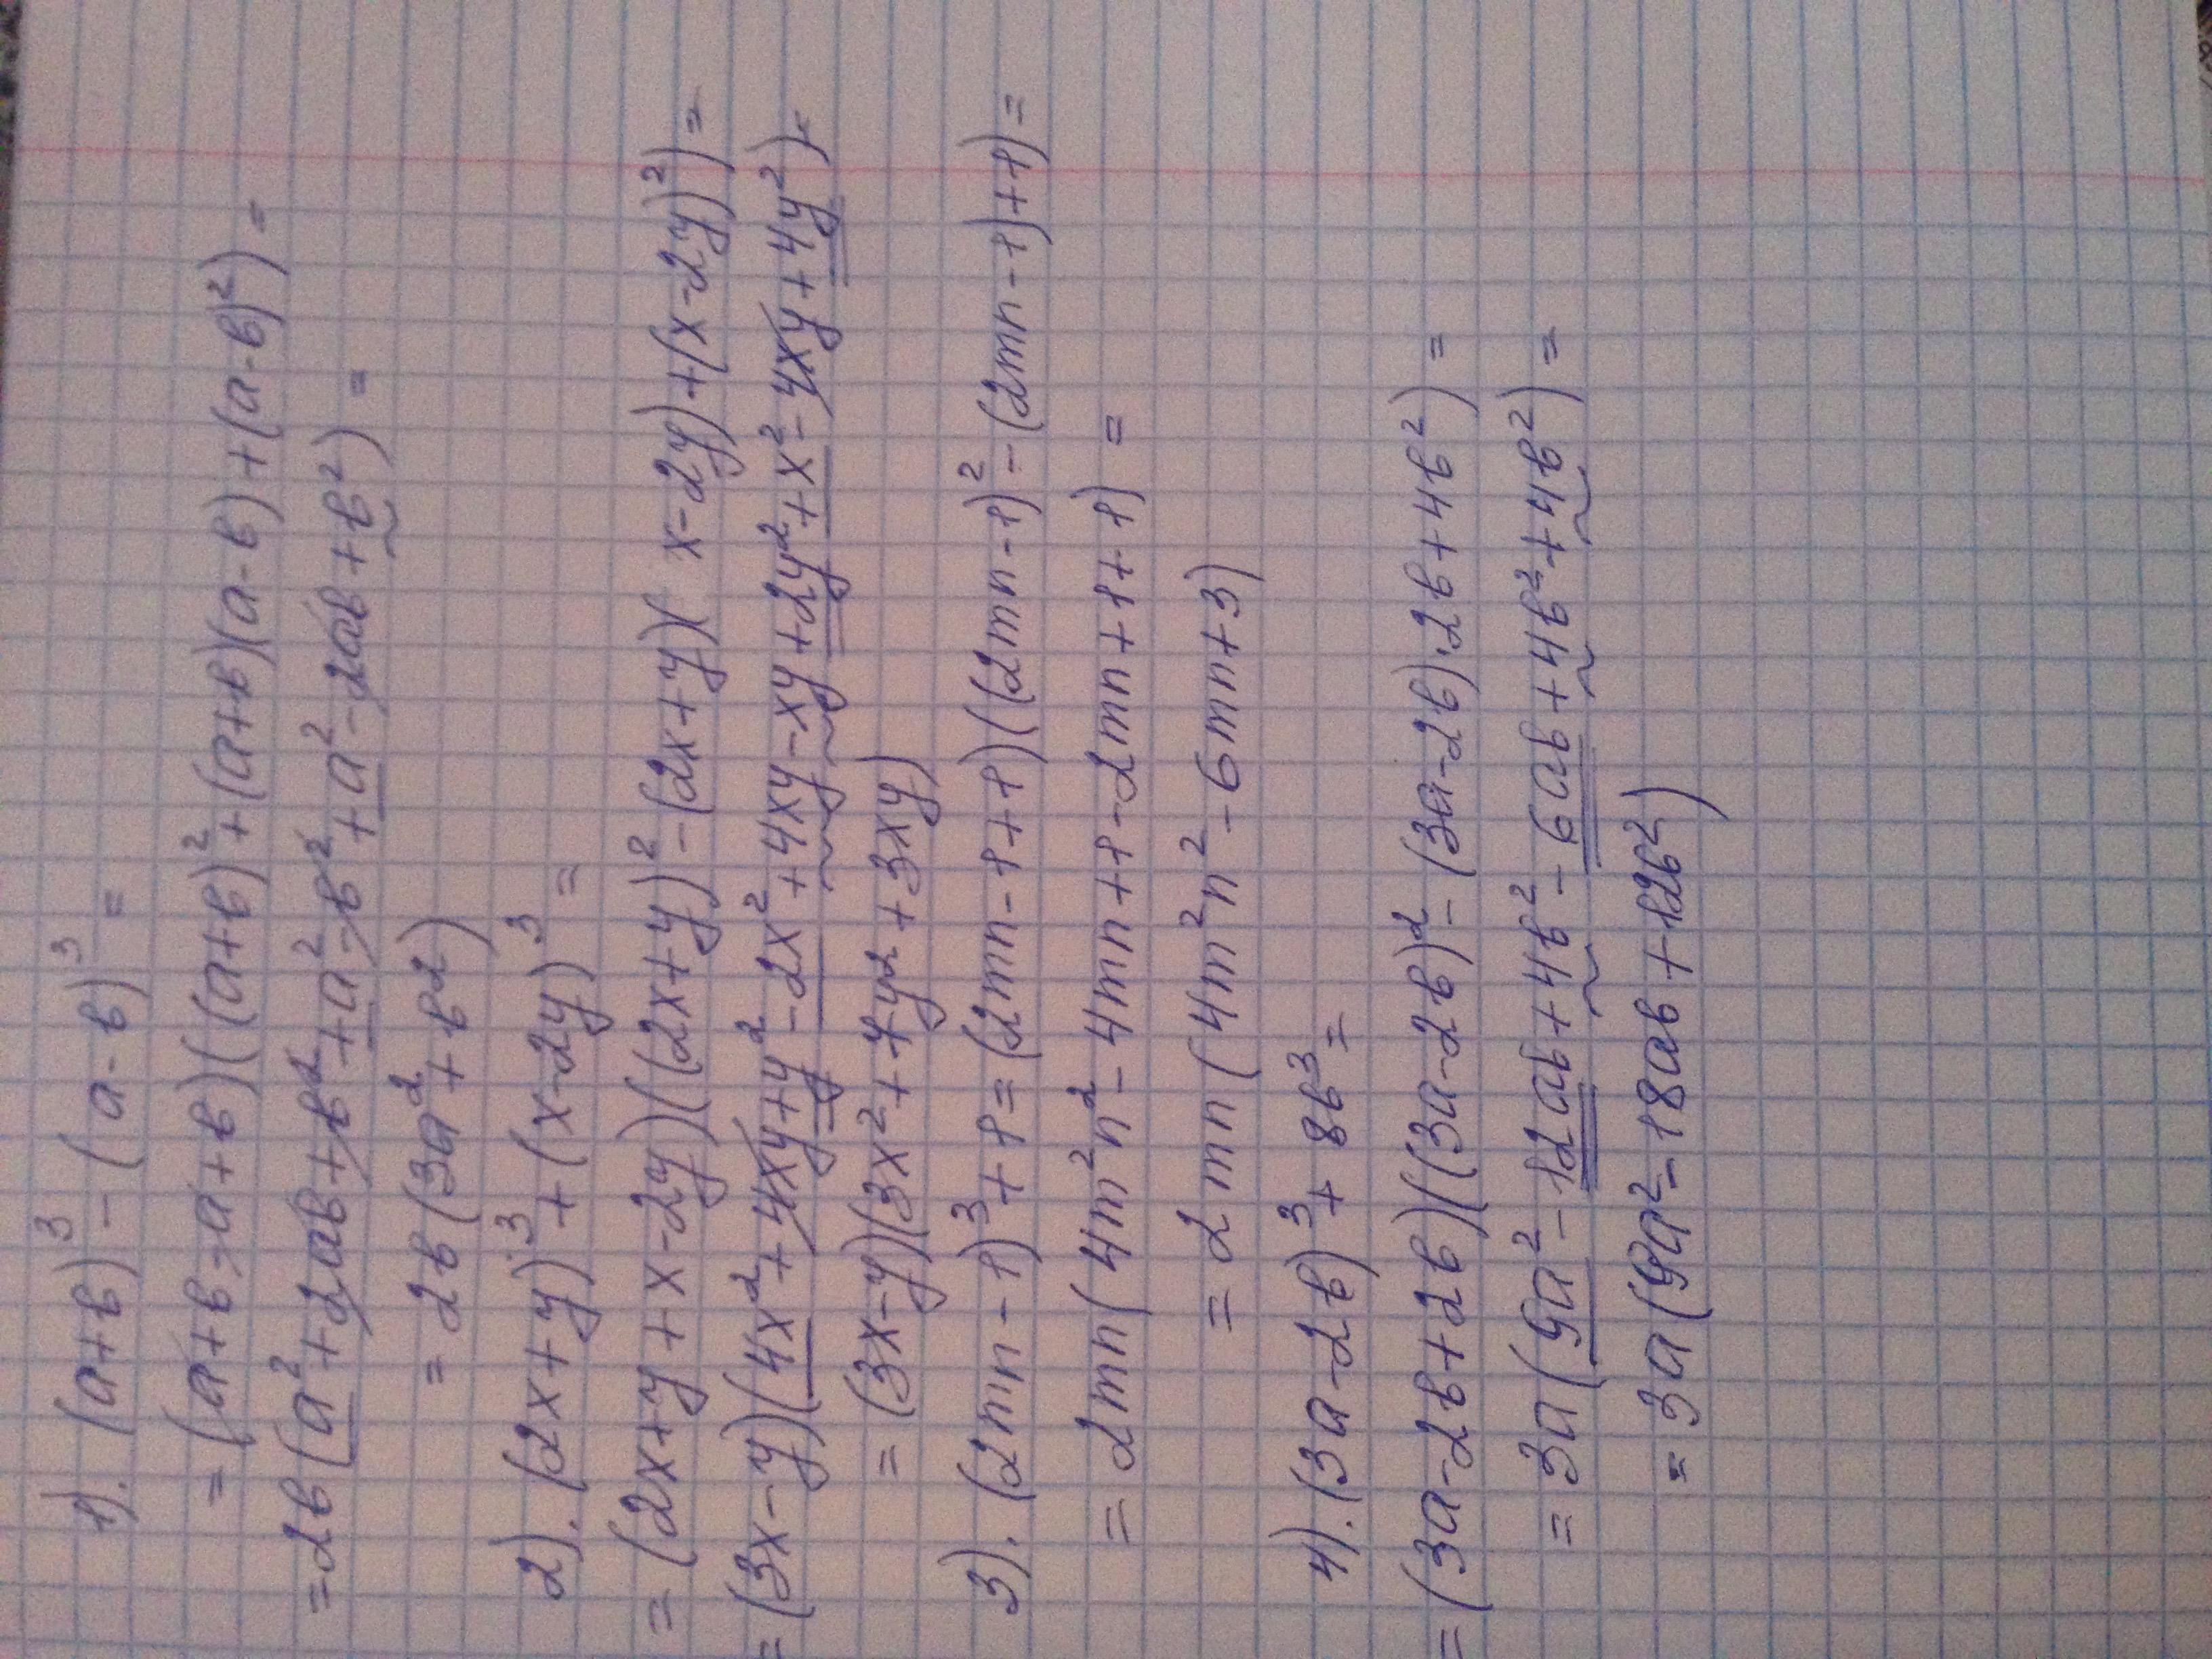 1). (a+b)³ - (a-b)³ =
= (a+b-a+b)((a+b)²+(a+b)(a-b)+(a-b)²) =
=2b(a²+2ab+b²+a²-b²+a²-2ab+b²) =
= 2b(3a²+b²)
2). (2x+y)³+(x-2y)³ =
= (2x+y+x-2y)((2x+y)²-(2x+y)(x-2y)+(x-2y)²)=
= (3x-y)(4x²+4xy+y²-2x²+4xy-xy+2y²+x²-4xy+4y²)=
= (3x-y)(3x²+7y²+3xy)
3). (2mn-1)³+1=(2mn-1+1)((2mn-1)²-(2mn-1)+1)=
= 2mn(4m²n²-4mn+1-2mn+1+1) =
= 2mn(4m²n²-6mn+3)
4). (3a-2b)³+8b³=
= (3a-2b+2b)((3a-2b)²-(3a-2b)·2b+4b²) =
= 3a(9a²-12ab+4b²-6ab+4b²+4b²) =
= 3a(9a²-18ab+12b²)